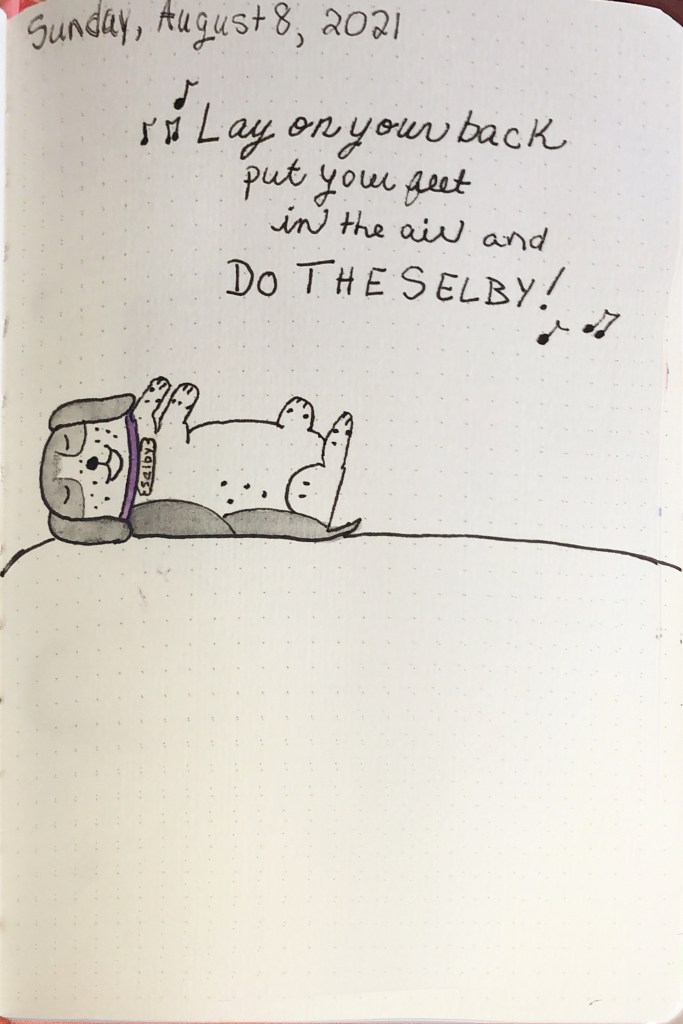 Sunday, August 8, 2021
Lay on your back
put your feet
in the air and
DO THE SELBY!
Selby